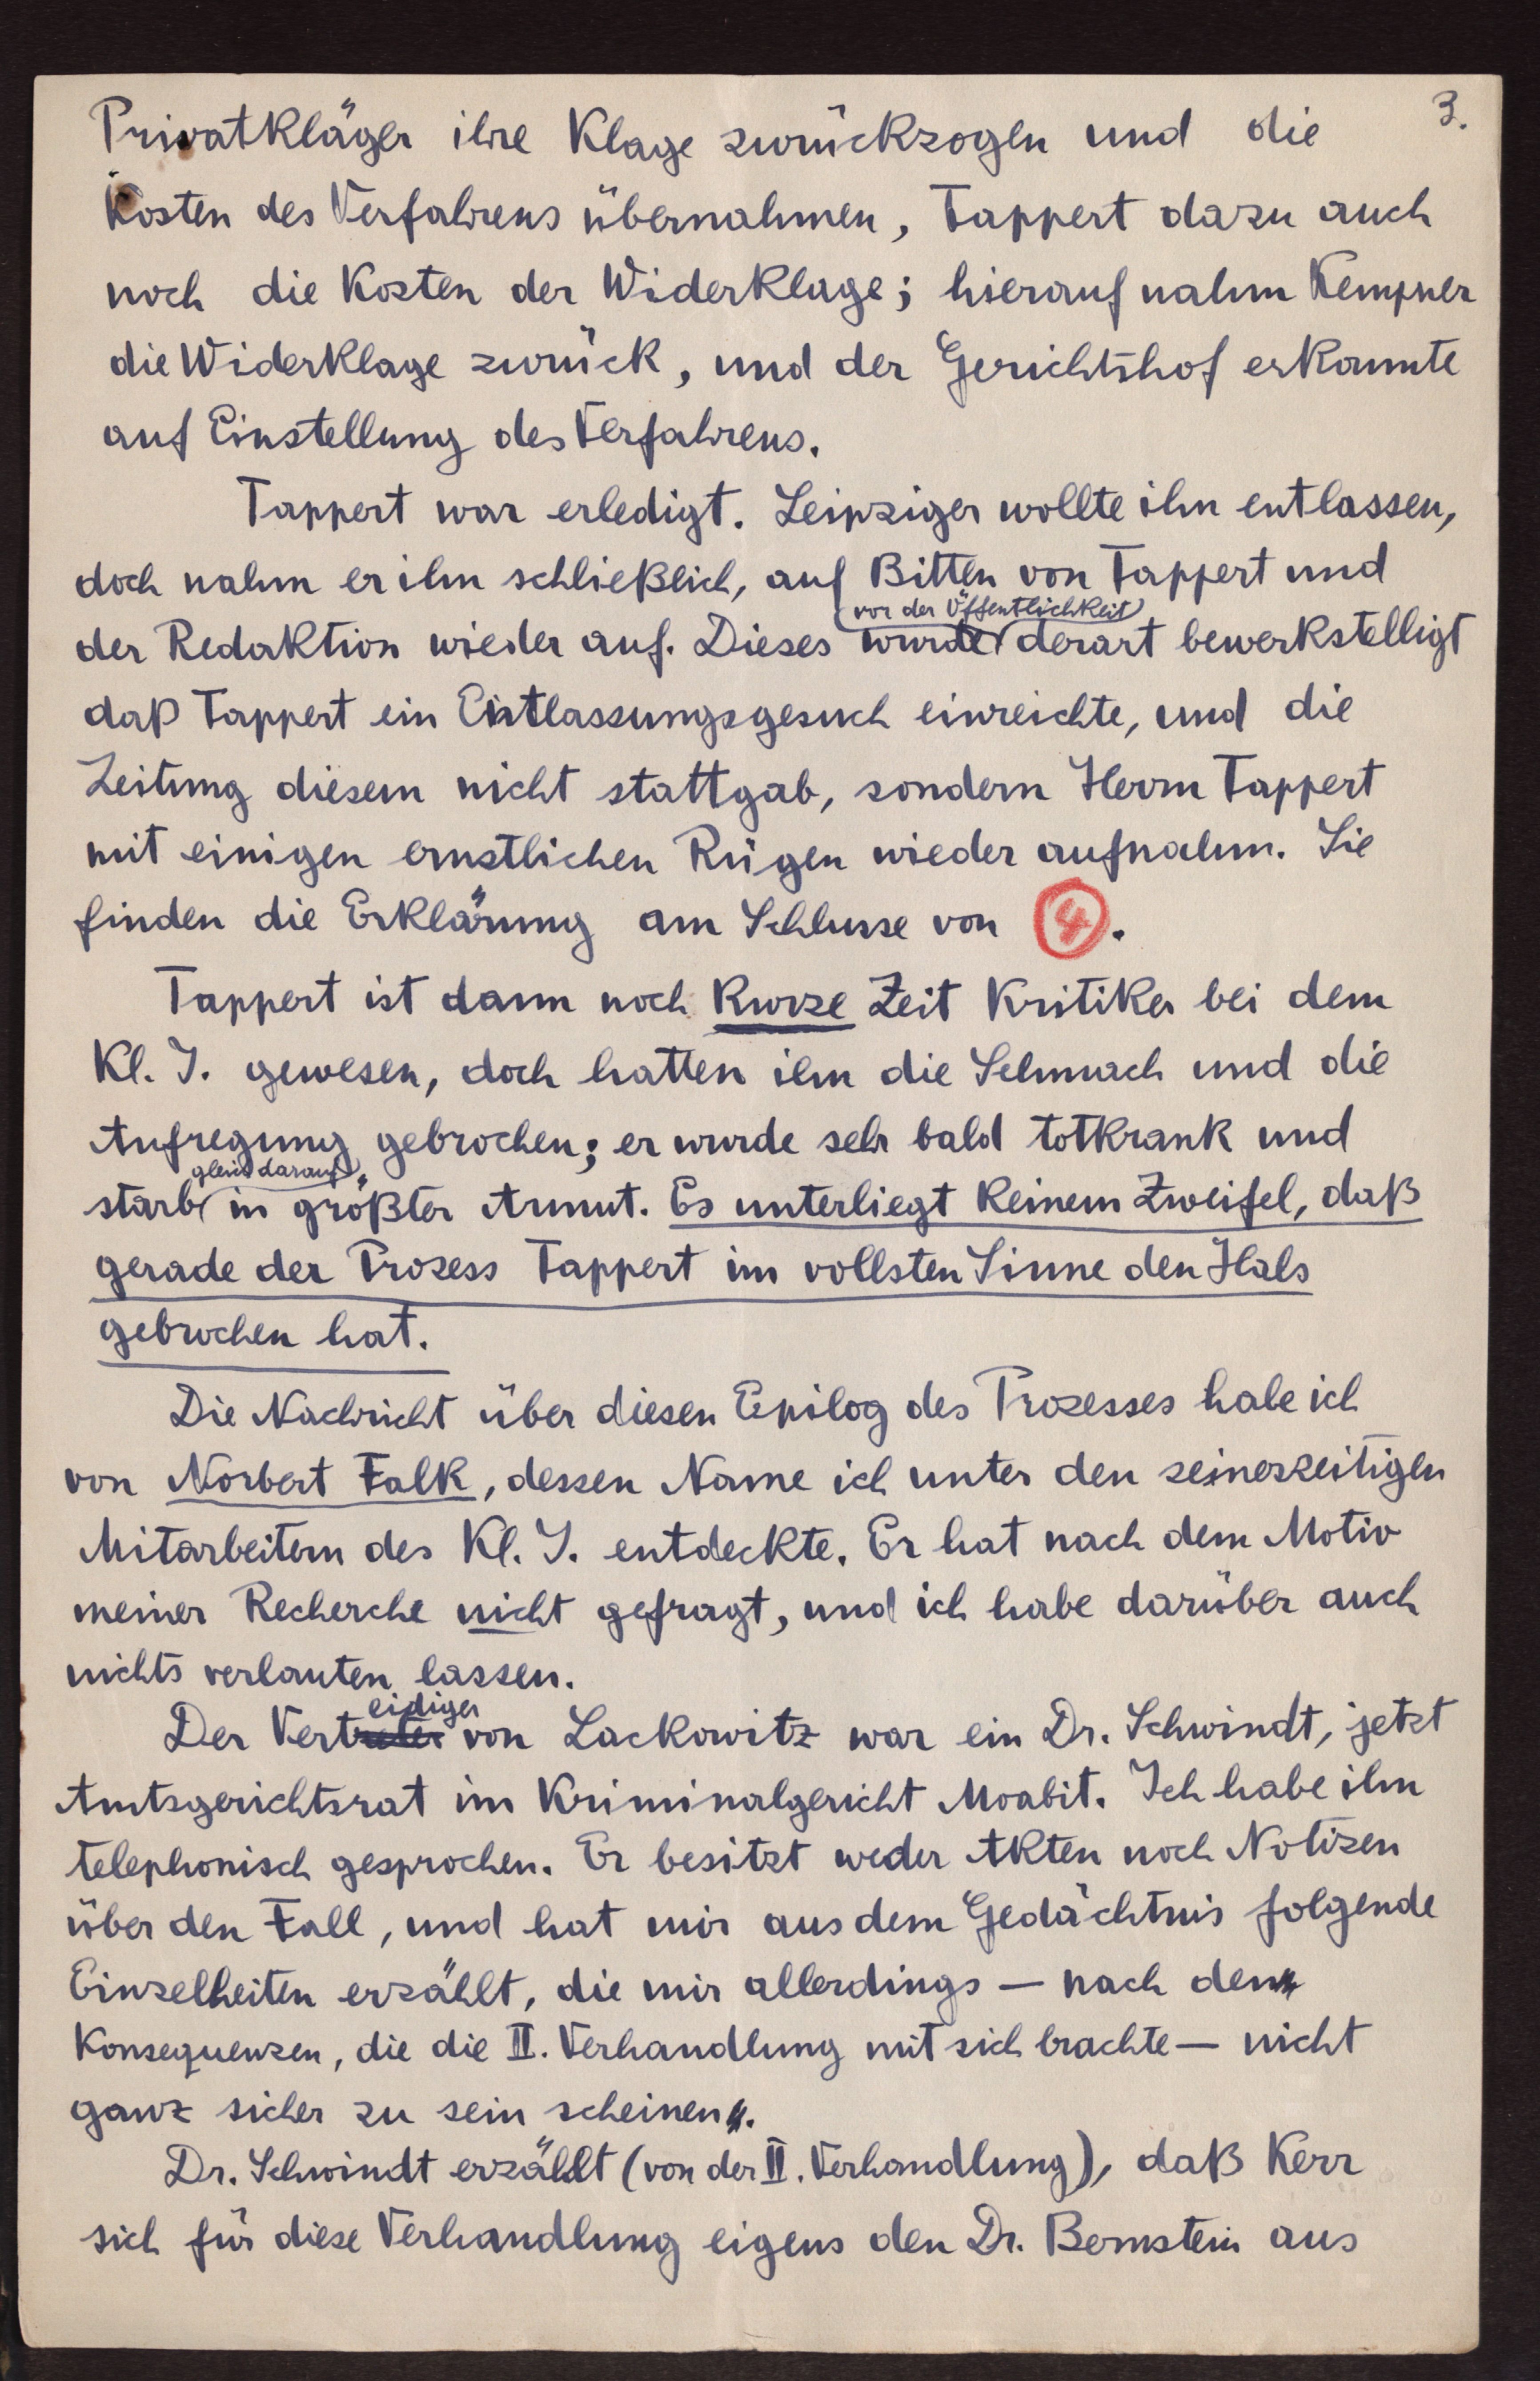 3.
Privatkläger ihre Klage zurückzogen und die
Kosten des Verfahrens übernahmen, Tappert dazu auch
noch die Kosten der Widerklage; hierauf nahm Kempner
die Widerklage zurück, und der Gerichtshof erkannte
auf Einstellung des Verfahrens.
Tappert war erledigt. Leipziger wollte ihn entlassen,
doch nahm er ihn schließlich, auf Bitten von Tappert und
vor der Öffentlichkeit
der Redaktion wieder auf. Dieses wurde derart bewerkstelligt
daß Tappert ein Entlassungsgesuch einreichte, und die
Zeitung diesem nicht stattgab, sondern Herrn Tappert
mit einigen ernstlichen Rügen wieder aufnahm. Sie
finden die Erklärung am Schlusse von 4.
Tappert ist dann noch kurze Zeit Kritiker bei dem
Kl. J. gewesen, doch hatten ihn die Schmach und die
Aufregung gebrochen; er wurde sehr bald totkrank und
gleich darauf
starb in größter Armut. Es unterliegt keinem Zweifel, daß
gerade der Prozess Tappert im vollsten Sinne den Hals
gebrochen hat.
Die Nachricht über diesen Epilog des Prozesses habe ich
von Norbert Falk, dessen Name ich unter den seinerzeitigen
Mitarbeitern des Kl. J. entdeckte. Er hat nach dem Motiv
meiner Recherche nicht gefragt, und ich habe darüber auch
nichts verlauten lassen.
eidiger
Der Vertreter von Lackowitz war ein Dr. Schwindt, jetzt
Amtsgerichtsrat im Kriminalgericht Moabit. Ich habe ihn
telephonisch gesprochen. Er besitzt weder Akten noch Notizen
über den Fall, und hat mir aus dem Gedächtnis folgende
Einzelheiten erzählt, die mir allerdings — nach den
Konsequenzen, die die II. Verhandlung mit sich brachte — nicht
ganz sicher zu sein scheinen.
Dr. Schwindt erzählt (von der II. Verhandlung), daß Kerr
sich für diese Verhandlung eigens den Dr. Bernstein aus